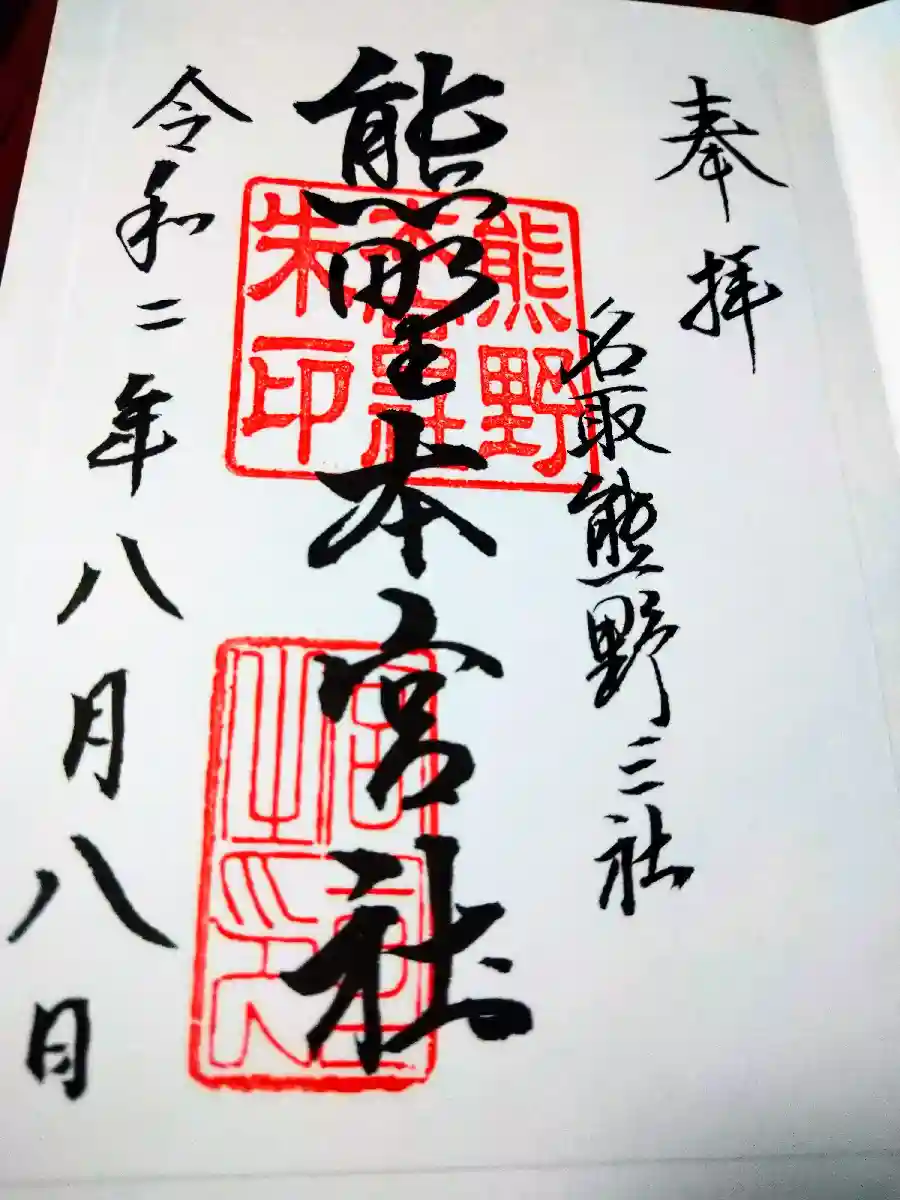 奉拝
名取熊野三社
熊野本宮社
熊野
本宮社
朱印
令和二年八月八日